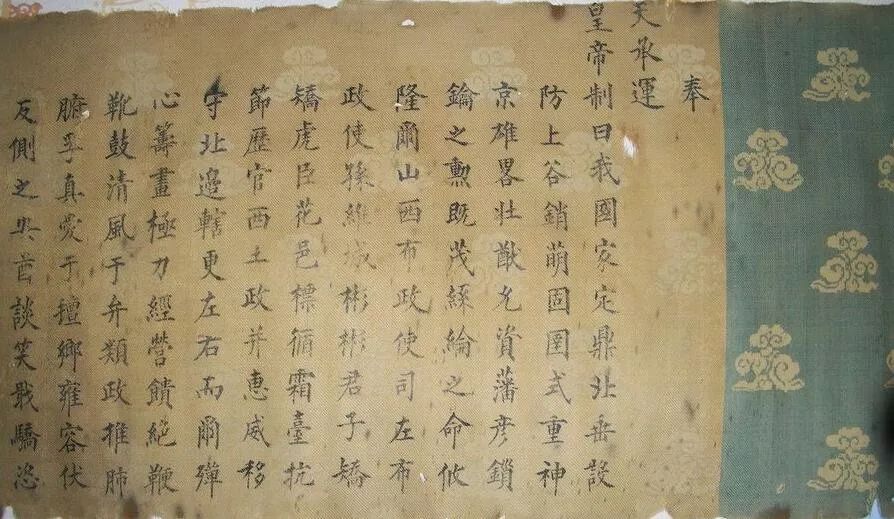 奉
天承運
皇帝制曰我國家定鼎北垂設
防上谷銷萌固圉式重神
京雄畧壯猷允資藩彦鎖
鑰之勳既茂絲綸之命攸
隆爾山西布政使司左布
政使孫維城彬彬君子矯
矯虎臣花邑標循霜臺抗
節歷官西土政并惠威移
守北邊轄更左右而爾殫
心籌畫極力經營饋絕鞭
靴鼓清風于弁類政推肺
腑孚真愛于鄉雍容伏
反側之酋談笑戢驕恣